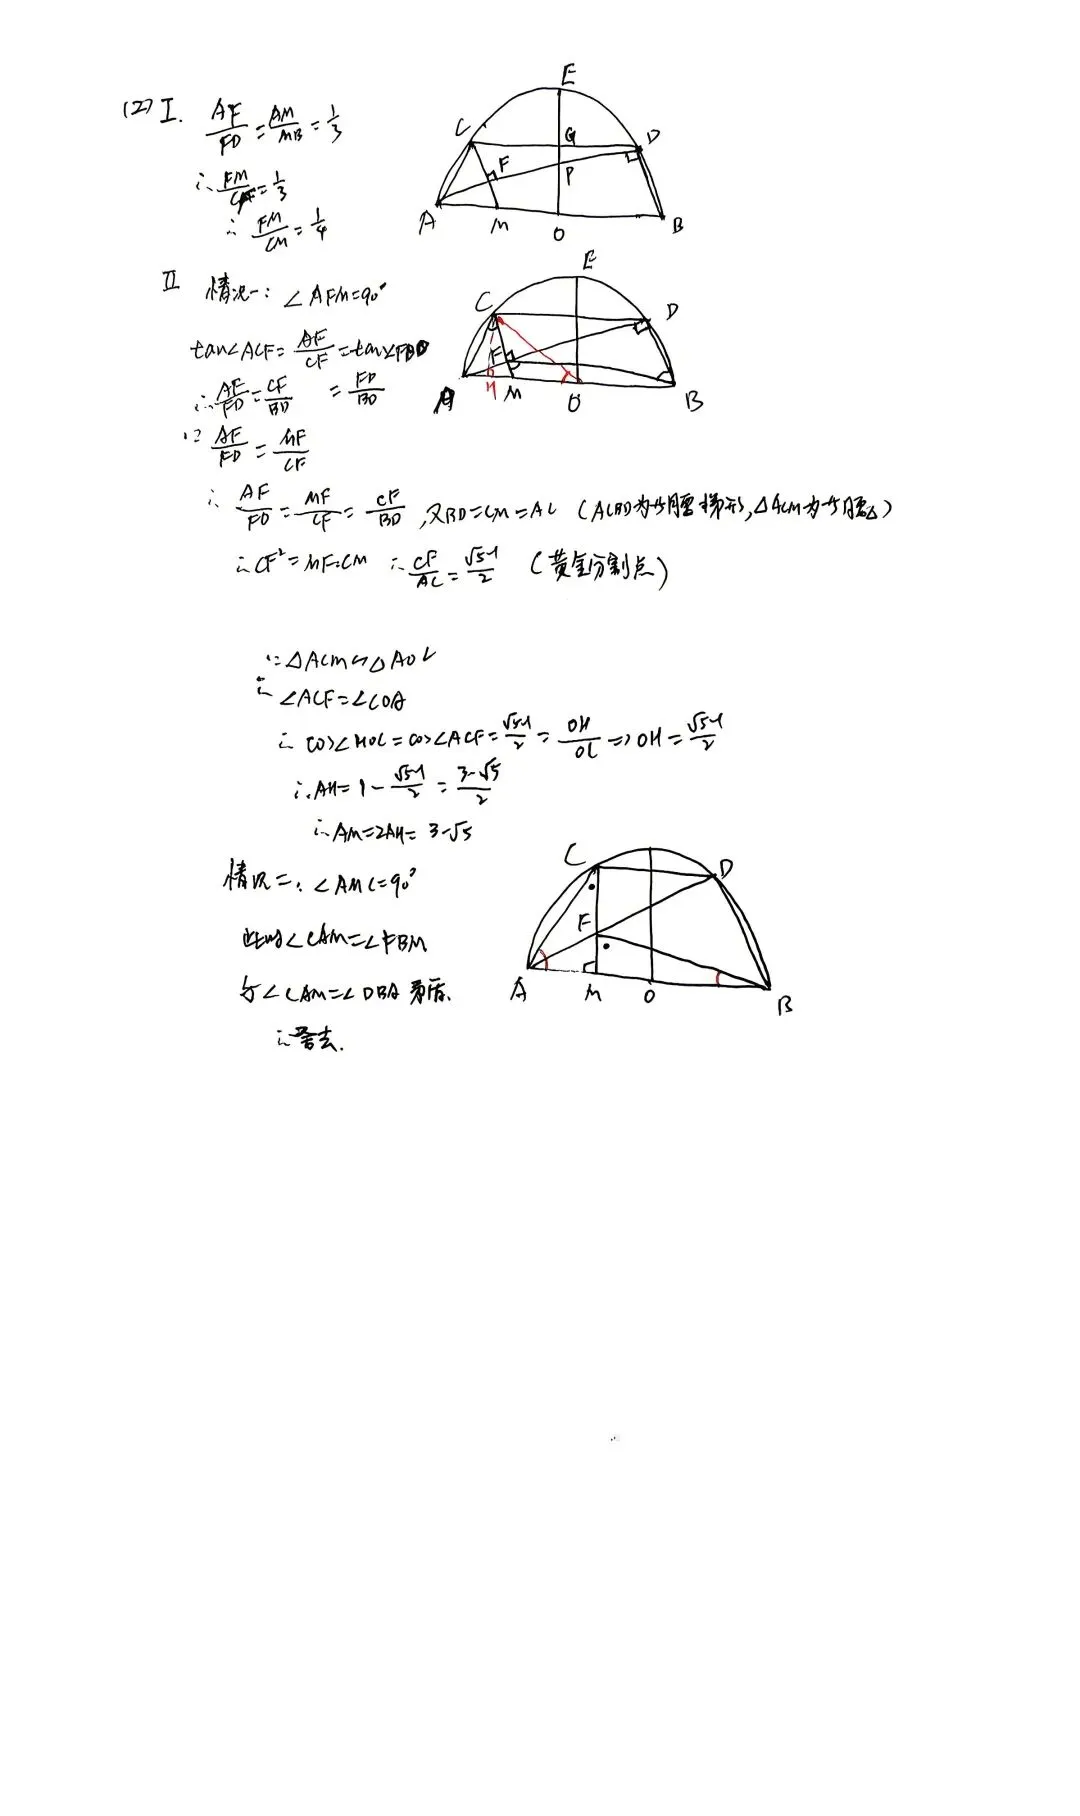 (2) I. AF/FD = AM/MB = 1/3
∴ FM/CF = 1/3
∴ FM/CM = 1/4
E
C G D
F P
A M O B
II 情况一: ∠AFM=90°
tan∠ACF = AF/CF = tan∠FBD = FD/BD
∴ AF/FD = CF/BD
∵ AF/FD = MF/CF
∴ AF/FD = MF/CF = CF/BD, 又BD=CM=AC (ACDB为等腰梯形, △ACM为等腰△)
∴ CF²=MF·CM ∴ CF/AC = (√5-1)/2 (黄金分割点)
E
C D
F
A H M O B
∵ △ACM∽△AOC
∴ ∠ACF=∠COA
∴ cos∠HOC=cos∠ACF= (√5-1)/2 = OH/OC => OH = (√5-1)/2
∴ AH= 1 - (√5-1)/2 = (3-√5)/2
∴ AM=2AH= 3-√5
情况二: ∠AMC=90°
此时∠CAM=∠FBM
与∠CAM=∠DBA矛盾.
∴ 舍去.
C D
F
A M O B